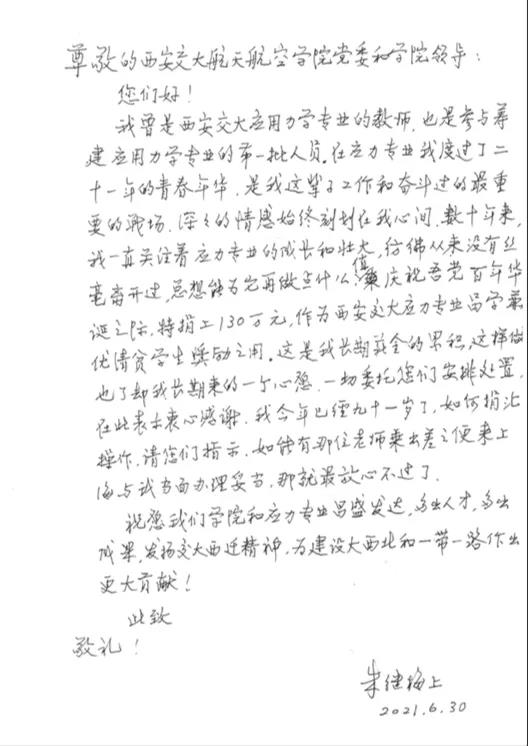 尊敬的西安交大航天航空学院党委和学院领导：
您们好！
我曾是西安交大应用力学专业的教师，也是参与筹
建应用力学专业的第一批人员。在应力专业我度过了二
十一年的青春年华，是我这辈子工作和奋斗过的最重
要的战场，深深的情感始终刻划在我心间。数十年来，
我一直关注着应力专业的成长和壮大，仿佛从来没有丝
毫离开过，总想能为它再做点什么。值兹庆祝吾党百年华
诞之际，特捐上130万元，作为西安交大应力专业品学兼
优清贫学生奖励之用。这是我长期薪金的累积，这样做
也了却我长期来的一个心愿。一切委托您们安排处置，
在此表示衷心感谢。我今年已经九十一岁了，如何捐汇
操作，请您们指示。如能有那位老师乘出差之便来上
海与我当面办理妥当，那就最放心不过了。
祝愿我们学院和应力专业昌盛发达，多出人才，多出
成果，发扬交大西迁精神，为建设大西北和一带一路作出
更大贡献！
此致
敬礼！
朱继梅上
2021.6.30